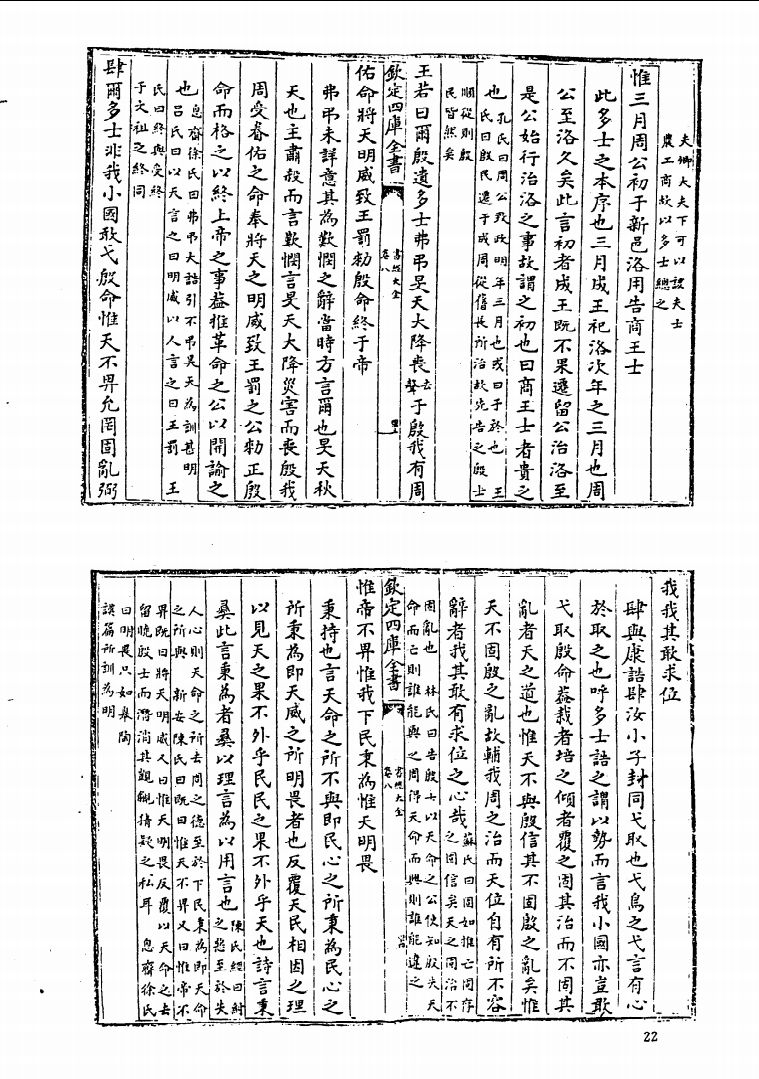 夫鄉大夫下可以該夫士
農工商故以多士總之
惟三月周公初于新邑洛用告商王士
此多士之本序也三月成王祀洛次年之三月也周
公至洛久矣此言初者成王既不果遷留公治洛至
是公始行治洛之事故謂之初也曰商王士者貴之
也孔氏曰周公致政明年三月也或曰于於也 王
氏曰殷民遷于成周從舊長所治故先告之殷士
順從則殷
民皆然矣
王若曰爾殷遺多士弗弔旻天大降喪去聲于殷我有周
欽定四庫全書
書經大全
卷八
佑命將天明威致王罰勑殷命終于帝
弗弔未詳意其為歎憫之辭當時方言爾也旻天秋
天也主肅殺而言歎憫言旻天大降災害而喪殷我
周受眷佑之命奉將天之明威致王罰之公勑正殷
命而格之以終上帝之事蓋推革命之公以開諭之
也息齋徐氏曰弗弔大誥引不弔昊天為訓甚明
呂氏曰以天言之曰明威以人言之曰王罰 王
氏曰終與受終
于文祖之終同
肆爾多士非我小國敢弋殷命惟天不畀允罔固亂弼
我我其敢求位
肆與康誥肆汝小子封同弋取也弋鳥之弋言有心
於取之也呼多士語之謂以勢而言我小國亦豈敢
弋取殷命蓋栽者培之傾者覆之固其治而不固其
亂者天之道也惟天不與殷信其不固殷之亂矣惟
天不固殷之亂故輔我周之治而天位自有所不容
辭者我其敢有求位之心哉蘇氏曰固如推亡固存
之固信矣天之固治不
固亂也 林氏曰告殷士以天命之公使知殷失天
命而亡則誰能與之周得天命而興則誰能違之
欽定四庫全書
書經大全
卷八
惟帝不畀惟我下民秉為惟天明畏
秉持也言天命之所不與即民心之所秉為民心之
所秉為即天威之所明畏者也反覆天民相因之理
以見天之果不外乎民民之果不外乎天也詩言秉
彝此言秉為者彝以理言為以用言也陳氏經曰紂
之惡至於失
人心則天命之所去周之德至於下民秉為即天命
之所與 新安陳氏曰既曰惟天不畀又曰惟帝不
畀既曰將天明威又曰惟天明畏反覆以天命之去
留曉殷士而潛消其覬覦猜疑之私耳 息齋徐氏
曰明畏只如皋陶
謨篇所訓為明
22